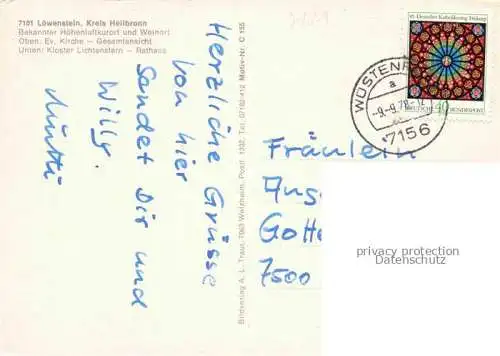 7101 Löwenstein, Kreis Heilbronn
Bekannter Höhenluftkurort und Weinort
Oben: Ev. Kirche – Gesamtansicht
Unten: Kloster Lichtenstern – Rathaus
Herzliche Grüsse
von hier
sendet Dir und
Willy.
Mutti
Bildverlag A. L. Traun, 7063 Welzheim, Postf. 1332, Tel. 07182/412 Motiv-Nr. C 155
85. Deutscher Katholikentag Freiburg
40
DEUTSCHE BUNDESPOST
WÜSTEN
a
-9.-9.78-12
7156
Fräulein
Gott
7500
privacy protection
Datenschutz